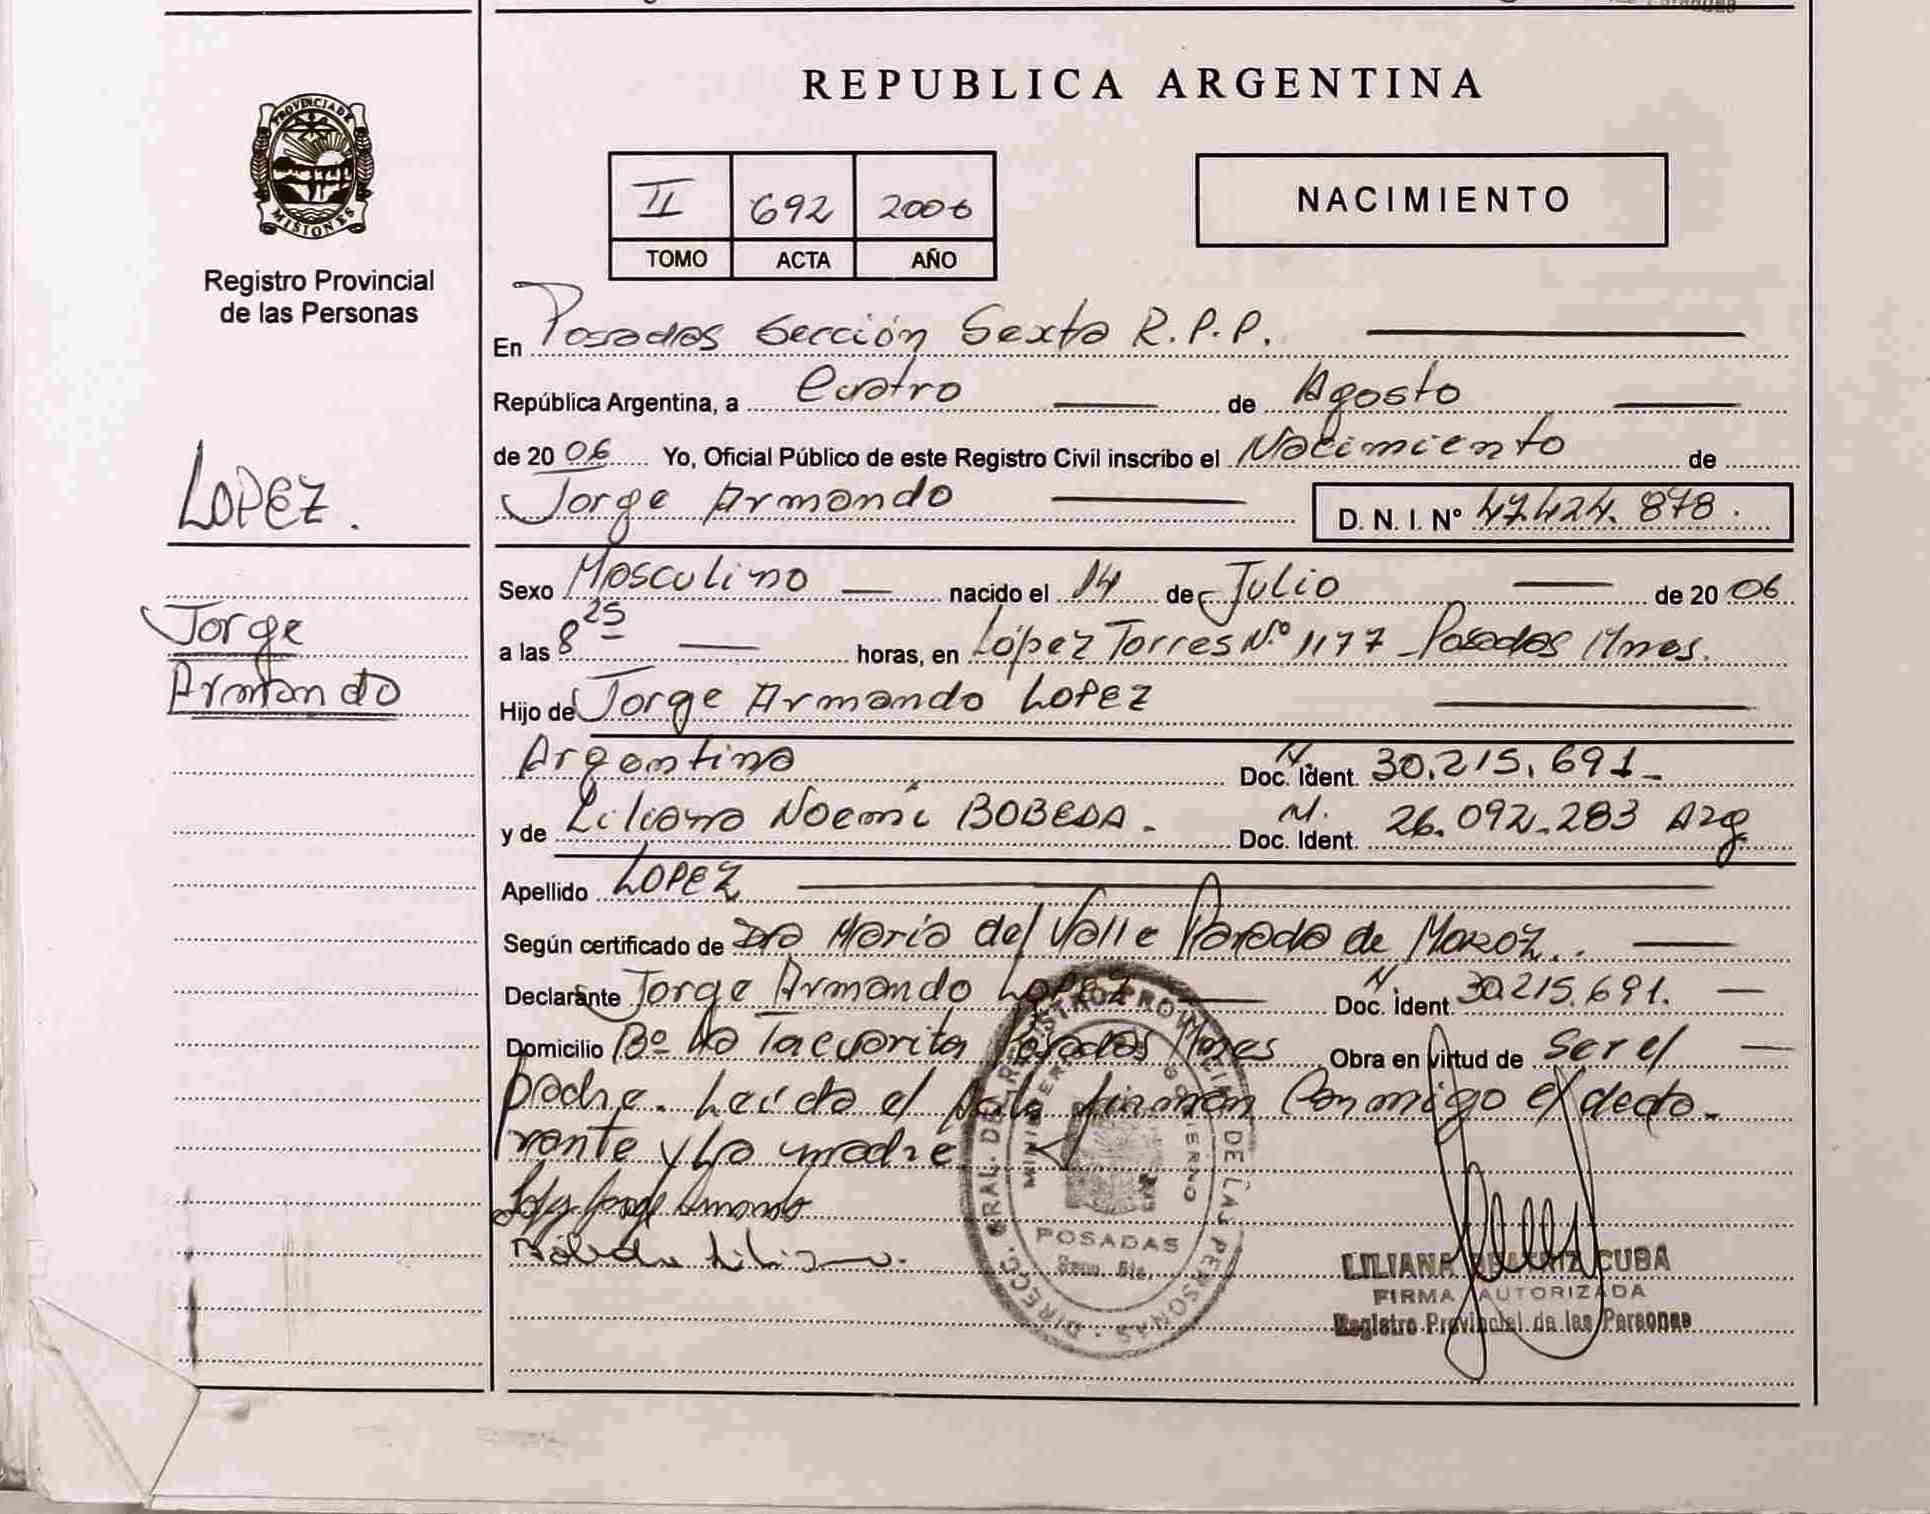 REPUBLICA ARGENTINA
PROVINCIA DE
MISIONES
Registro Provincial
de las Personas
II 692 2006
TOMO ACTA AÑO
NACIMIENTO
En Posadas Sección Sexta R.P.P.
República Argentina, a Cuatro de Agosto
de 2006 Yo, Oficial Público de este Registro Civil inscribo el Nacimiento de
LOPEZ.
Jorge Armando D. N. I. Nº 47.424.878.
Sexo Masculino nacido el 14 de Julio de 2006
Jorge
Armando
a las 8 25 horas, en López Torres N.º 1177 - Posadas Mnes.
Hijo de Jorge Armando LOPEZ
Argentino Doc. Ident. N. 30.215.691-
y de Liliana Noemí BOBEDA. - Doc. Ident. N. 26.092.283 Arg
Apellido LOPEZ
Según certificado de Dra María del Valle Parada de MOROZ.
Declarante Jorge Armando LOPEZ Doc. Ident N. 30.215.691.
Domicilio Bº La Tacuarita Posadas Mnes Obra en virtud de Ser el
padre. Leída el Acta firman Conmigo el decla-
rante y La madre
Lopez Jorge Armando
DIRECC. GRAL. DEL REGISTRO PROVINCIAL DE LAS PERSONAS
MINISTERIO GOBIERNO
POSADAS
LILIANA BEATRIZ CUBA
FIRMA AUTORIZADA
Registro Provincial de las Personas